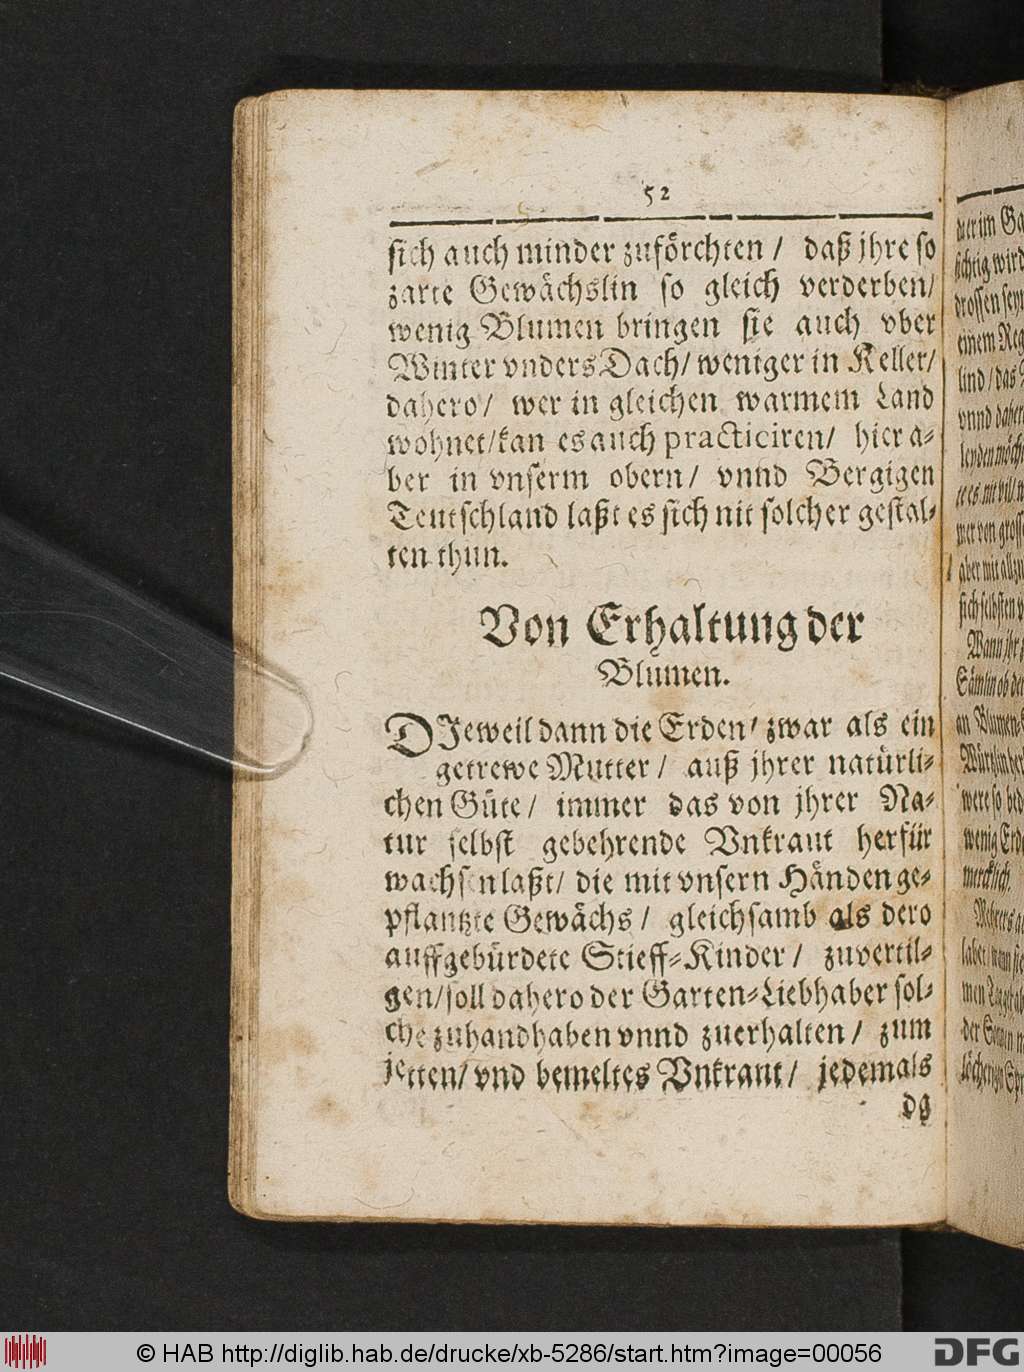 52
sich auch minder zuförchten / daß jhre so
zarte Gewächslin so gleich verderben/
wenig Blumen bringen sie auch vber
Winter vnders Dach/ weniger in Keller/
dahero/ wer in gleichen warmem Land
wohnet/kan es auch practiciren/ hier a-
ber in vnserm obern/ vnnd Bergigen
Teutschland laßt es sich nit solcher gestal-
ten thun.
Von Erhaltung der
Blumen.
DIeweil dann die Erden/ zwar als ein
getrewe Mutter / auß jhrer natürli-
chen Güte/ immer das von jhrer Na-
tur selbst gebehrende Vnkraut herfür
wachsen laßt/ die mit vnsern Händen ge-
pflantzte Gewächs / gleichsamb als dero
auffgebürdete Stieff-Kinder / zuvertil-
gen/soll dahero der Garten-Liebhaber sol-
che zuhandhaben vnnd zuerhalten / zum
jetten/ vnd bemeltes Vnkraut / jedemals
da
© HAB http://diglib.hab.de/drucke/xb-5286/start.htm?image=00056
DFG